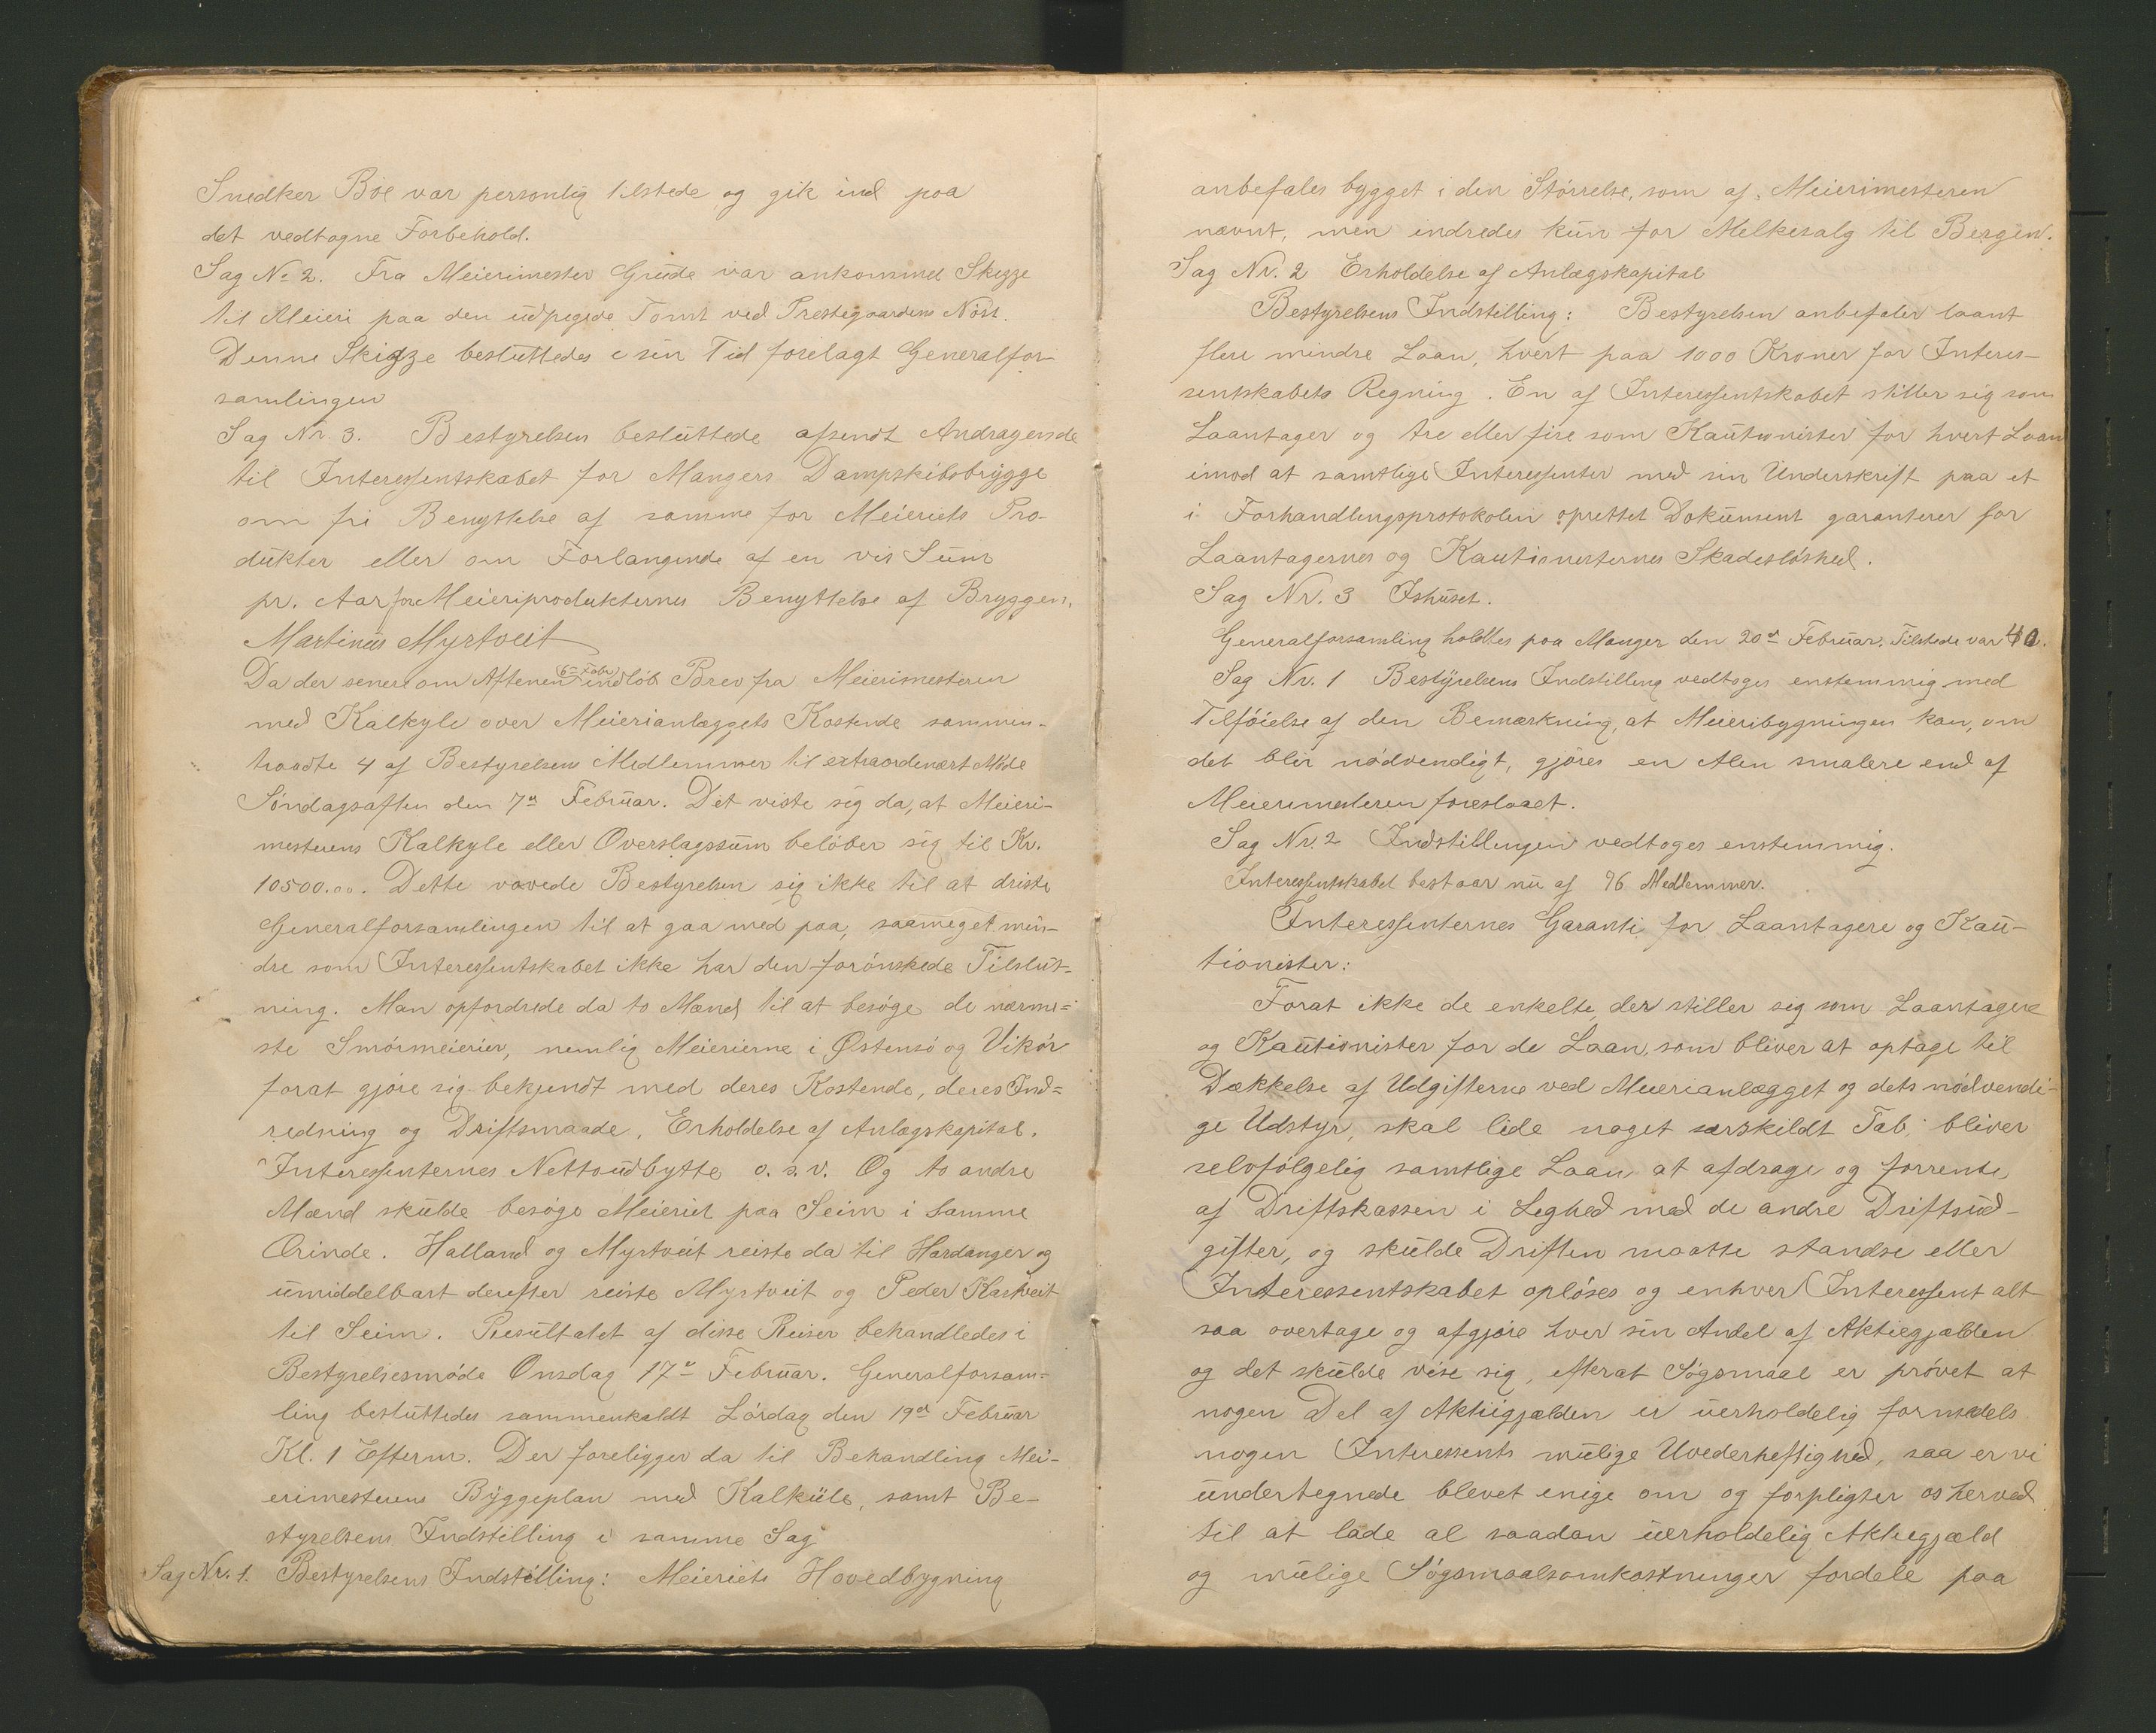 Snedker Bøe var personlig tilstede og gik ind paa
det vedtagne Forbehold.
Sag No 2. Fra Meierimester Grude var ankommed Skizze
til Meieri paa den udpegede Tomt ved Prestegaardens Nöst.
Denne Skizze besluttedes i sin Tid forelagt Generalfor-
samlingen
Sag Nr. 3. Bestyrelsen besluttede afsendt Andragende
til Interessentskabet for Mangers Dampskibsbrygge
om fri Benyttelse af samme for Meieriets Pro-
dukter eller om Forlangende af en vis Sum
pr. Aar for Meieriprodukternes Benyttelse af Bryggen.
Martinus Myrtveit
Da der senere om Aftenen 6te Febr. indløb Brev fra Meierimesteren
med Kalkyle over Meierianlæggets Kostende sammen-
traadte 4 af Bestyrelsens Medlemmer til extraordenært Møde
Søndagsaften den 7de Februar. Det viste sig da, at Meieri-
mesterens Kalkyle eller Overslagssum beløber sig til Kr.
10500.00. Dette vovede Bestyrelsen sig ikke til at driste
Generalforsamlingen til at gaa med paa, saameget min-
dre som Interessentskabet ikke har den forønskede Tilslut-
ning. Man opfordrede da to Mænd til at besøge de nærme-
ste Smørmeierier, nemlig Meierierne i Østensø og Vikør
forat gjøre sig bekjendt med deres Kostende, deres Ind-
redning og Driftsmaade, Erholdelse af Anlægskapital.
Interessenternes Nettoudbytte o. s. v. Og to andre
Mænd skulde besøge Meieriet paa Seim i samme
Ærinde. Halland og Myrtveit reiste da til Hardanger og
umiddelbart derefter reiste Myrtveit og Peder Kartveit
til Seim. Resultatet af disse Reiser behandledes i
Bestyrelsesmøde Onsdag 17de Februar. Generalforsam-
ling besluttedes sammenkaldt Lørdag den 19de Februar
Kl. 1 Efterm. Der foreligger da til Behandling Mei-
erimesterens Byggeplan med Kalküle, samt Be-
styrelsens Indstilling i samme Sag
Sag Nr. 1. Bestyrelsens Indstilling: Meieriets Hovedbygning
anbefales bygget i den Størrelse, som af Meierimesteren
nævnt, men indredes kun for Melkesalg til Bergen.
Sag Nr. 2 Erholdelse af Anlægskapital
Bestyrelsens Indstilling: Bestyrelsen anbefaler laant
flere mindre Laan, hvert paa 1000 Kroner for Interes-
sentskabets Regning. En af Interessentskabet stiller sig som
Laantager og tre eller fire som Kautionister for hvert Laan
imod at samtlige Interessenter med sin Underskrift paa et
i Forhandlingsprotokolen oprettet Dokument garanterer for
Laantagernes og Kautionisternes Skadesløshed.
Sag Nr. 3 Ishuset.
Generalforsamling holdtes paa Manger den 20de Februar. Tilstede var 40.
Sag Nr. 1 Bestyrelsens Indstilling vedtoges enstemmig med
Tilføielse af den Bemærkning, at Meieribygningen kan, om
det blir nødvendigt, gjøres en Alen smalere end af
Meierimesteren foreslaaet.
Sag Nr. 2 Indstillingen vedtoges enstemmig.
Interessentskabet bestaar nu af 96 Medlemmer.
Interessenternes Garanti for Laantagere og Kau-
tionister:
Forat ikke de enkelte, der stiller sig som Laantagere
og Kautionister for de Laan, som bliver at optage til
Dækkelse af Udgifterne ved Meierianlægget og dets nødvendi-
ge Udstyr, skal lide noget særskildt Tab, bliver
selvfølgelig samtlige Laan at afdrage og forrente
af Driftskassen i Lighed med de andre Driftsud-
gifter, og skulde Driften maatte standse eller
Interessentskabet opløses og enhver Interessent alt-
saa overtage og afgjøre hver sin Andel af Aktiegjælden
og det skulde vise sig, efterat Søgsmaal er prøvet at
nogen Del af Aktiegjælden er uerholdelig formedels
nogen Interessents mulige Uvederheftighed, saa er vi
undertegnede blevet enige om og forpligter os herved
til at lade al saadan uerholdelig Aktiegjæld
og mulige Søgsmaalsomkostninger fordele paa